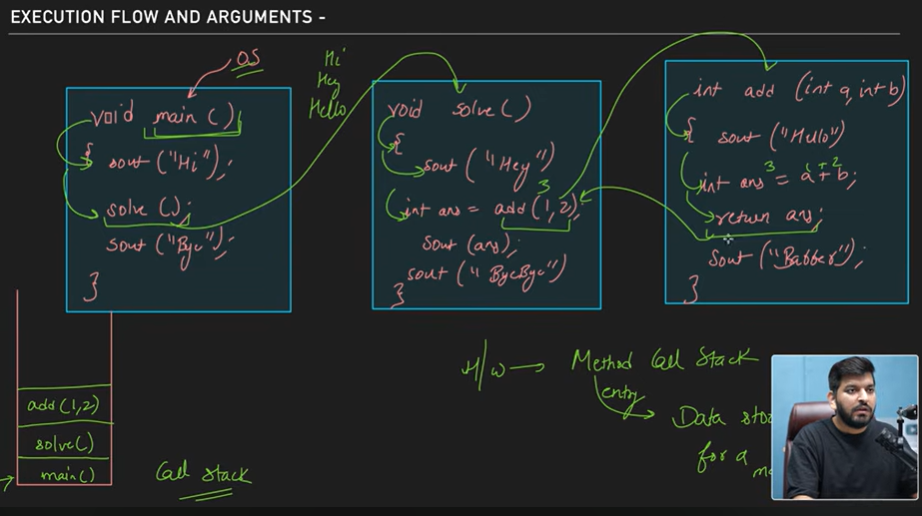 EXECUTION FLOW AND ARGUMENTS -
OS
Hi
Hey
Hello
void main ()
{
sout ("Hi");
solve ();
sout ("Bye");
}
void solve ()
{
sout ("Hey")
3
int ans = add (1,2);
sout (ans);
sout ("ByeBye")
}
int add (int a, int b)
{
sout ("Hello")
3 1+2
int ans = a + b;
return ans;
sout ("Babber");
}
add (1,2)
solve ()
main ()
Call Stack
H/w → Method Call Stack
entry
Data
for a